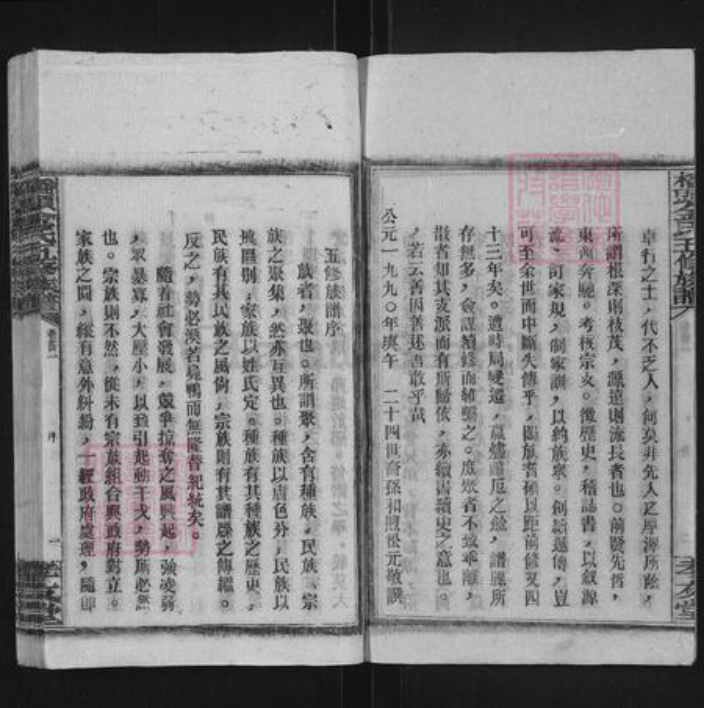 卓行之士，代不乏人，何莫非先人之厚澤所蔭，
所謂根深則枝茂，源遠則流長者也。前賢先哲，
東西奔馳。考核宗支。徵歷史，稽誌書，以敘源
流。訂家規，制家訓，以約族眾。創續遞傳，豈
可至余世而中斷失傳乎，闔族耆碩以距前修又四
十三年矣。遭時局變遷，之餘，譜牒所
存無多，僉謀續修而維繫之。庶眾者不致乖離，
散者如其支派而有所歸依，亦續書續史之意也。
，若云善因善述吾敢乎哉
公元一九九〇年庚午 二十四世裔孫和財松元敬譔
五修族譜序
族者，聚也。所謂聚，含有種族，民族，宗
族之聚集，然亦互異也。種族以膚色分，民族以
地區別，家族以姓氏定。種族有其種族之歷史，
民族有其民族之風尚，宗族則有其譜牒之傳繼。
反之，勢必渙若鳧鴨而無隆替紀統矣。
隨着社會發展，競爭掠奪之風興起，強凌弱
，眾暴寡，大壓小，以致引起動干戈，勢所必然
也。宗族則不然，從未有宗族組合與政府對立。
家族之間，縱有意外糾紛，一經政府處理，隨即
序
一
孝友堂